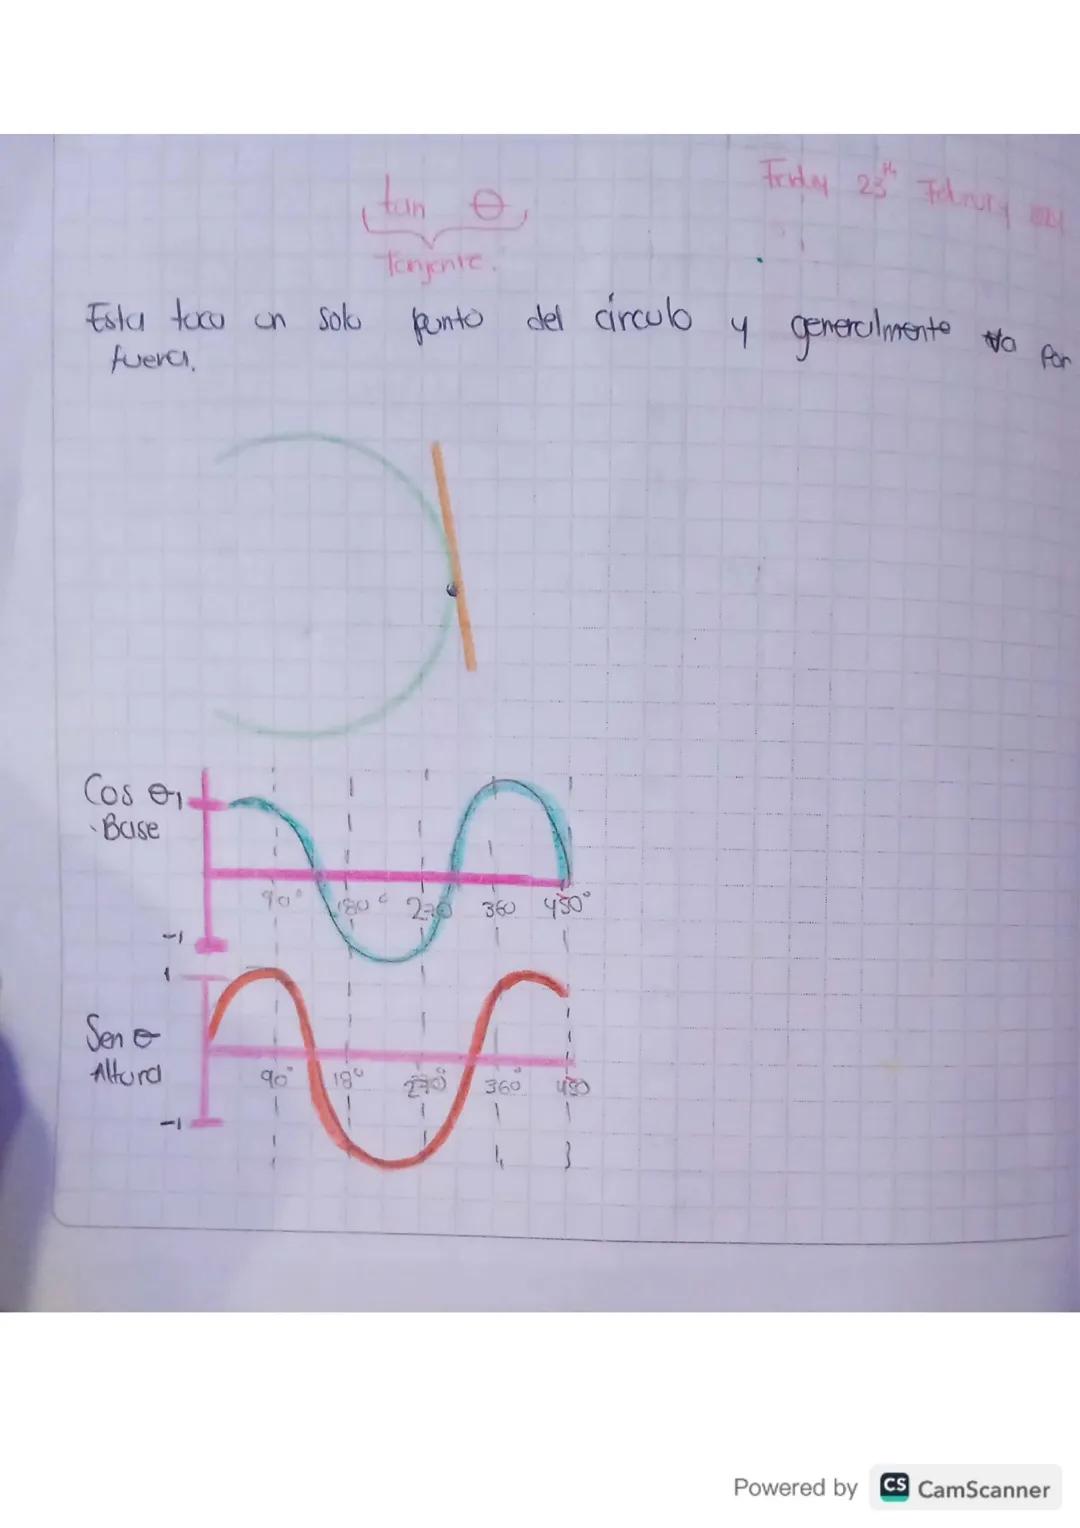 Friday 23th February
tan θ
Tanjente.
Esta toca un solo punto del círculo y generalmente va por
fuera.
Cos θ 1
·Base
90° 180° 270 360 450°
-1
1
Sen θ
Altura
90° 18° 270° 360° 450
-1
Powered by CS CamScanner